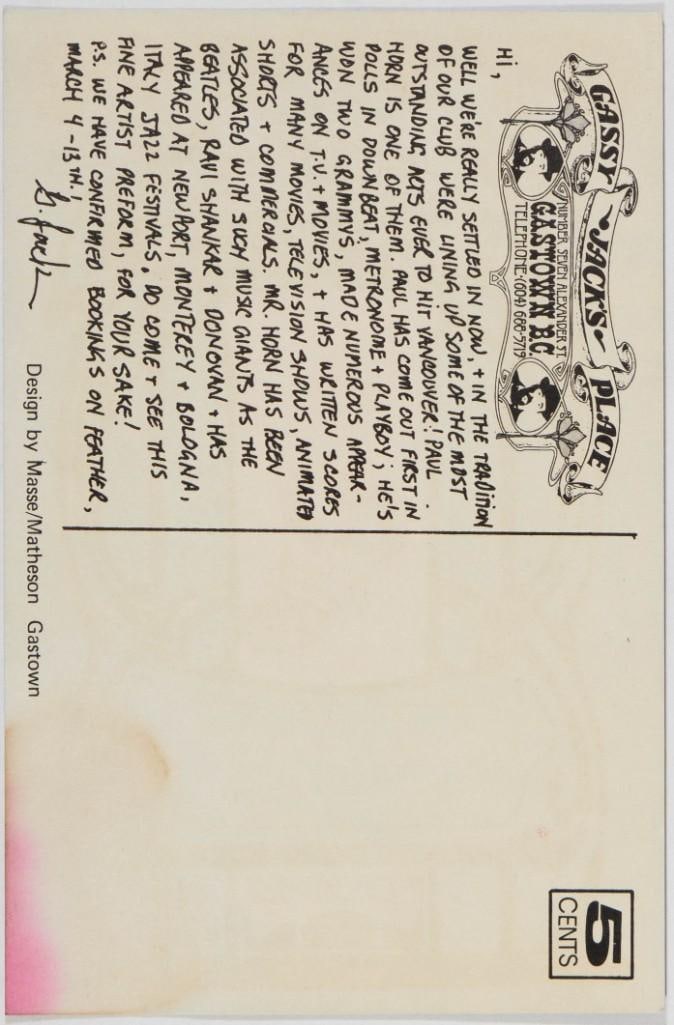 GASSY JACK'S PLACE
NUMBER SEVEN ALEXANDER ST.
GASTOWN BC
TELEPHONE·(604) 688-5719
Hi,
WELL WE'RE REALLY SETTLED IN NOW, + IN THE TRADITION
OF OUR CLUB WERE LINING UP SOME OF THE MOST
OUTSTANDING ACTS EVER TO HIT VANCOUVER! PAUL
HORN IS ONE OF THEM. PAUL HAS COME OUT FIRST IN
POLLS IN DOWNBEAT, METRONOME + PLAYBOY; HE'S
WON TWO GRAMMYS, MADE NUMEROUS APPEAR-
ANCES ON T.V. + MOVIES, + HAS WRITTEN SCORES
FOR MANY MOVIES, TELEVISION SHOWS, ANIMATED
SHORTS + COMMERCIALS. MR. HORN HAS BEEN
ASSOCIATED WITH SUCH MUSIC GIANTS AS THE
BEATLES, RAVI SHANKAR + DONOVAN + HAS
APPEARED AT NEWPORT, MONTEREY + BOLOGNA,
ITALY JAZZ FESTIVALS. DO COME + SEE THIS
FINE ARTIST PREFORM, FOR YOUR SAKE!
P.S. WE HAVE CONFIRMED BOOKINGS ON FEATHER,
MARCH 4-13TH!
G. Jack
Design by Masse/Matheson Gastown
5
CENTS